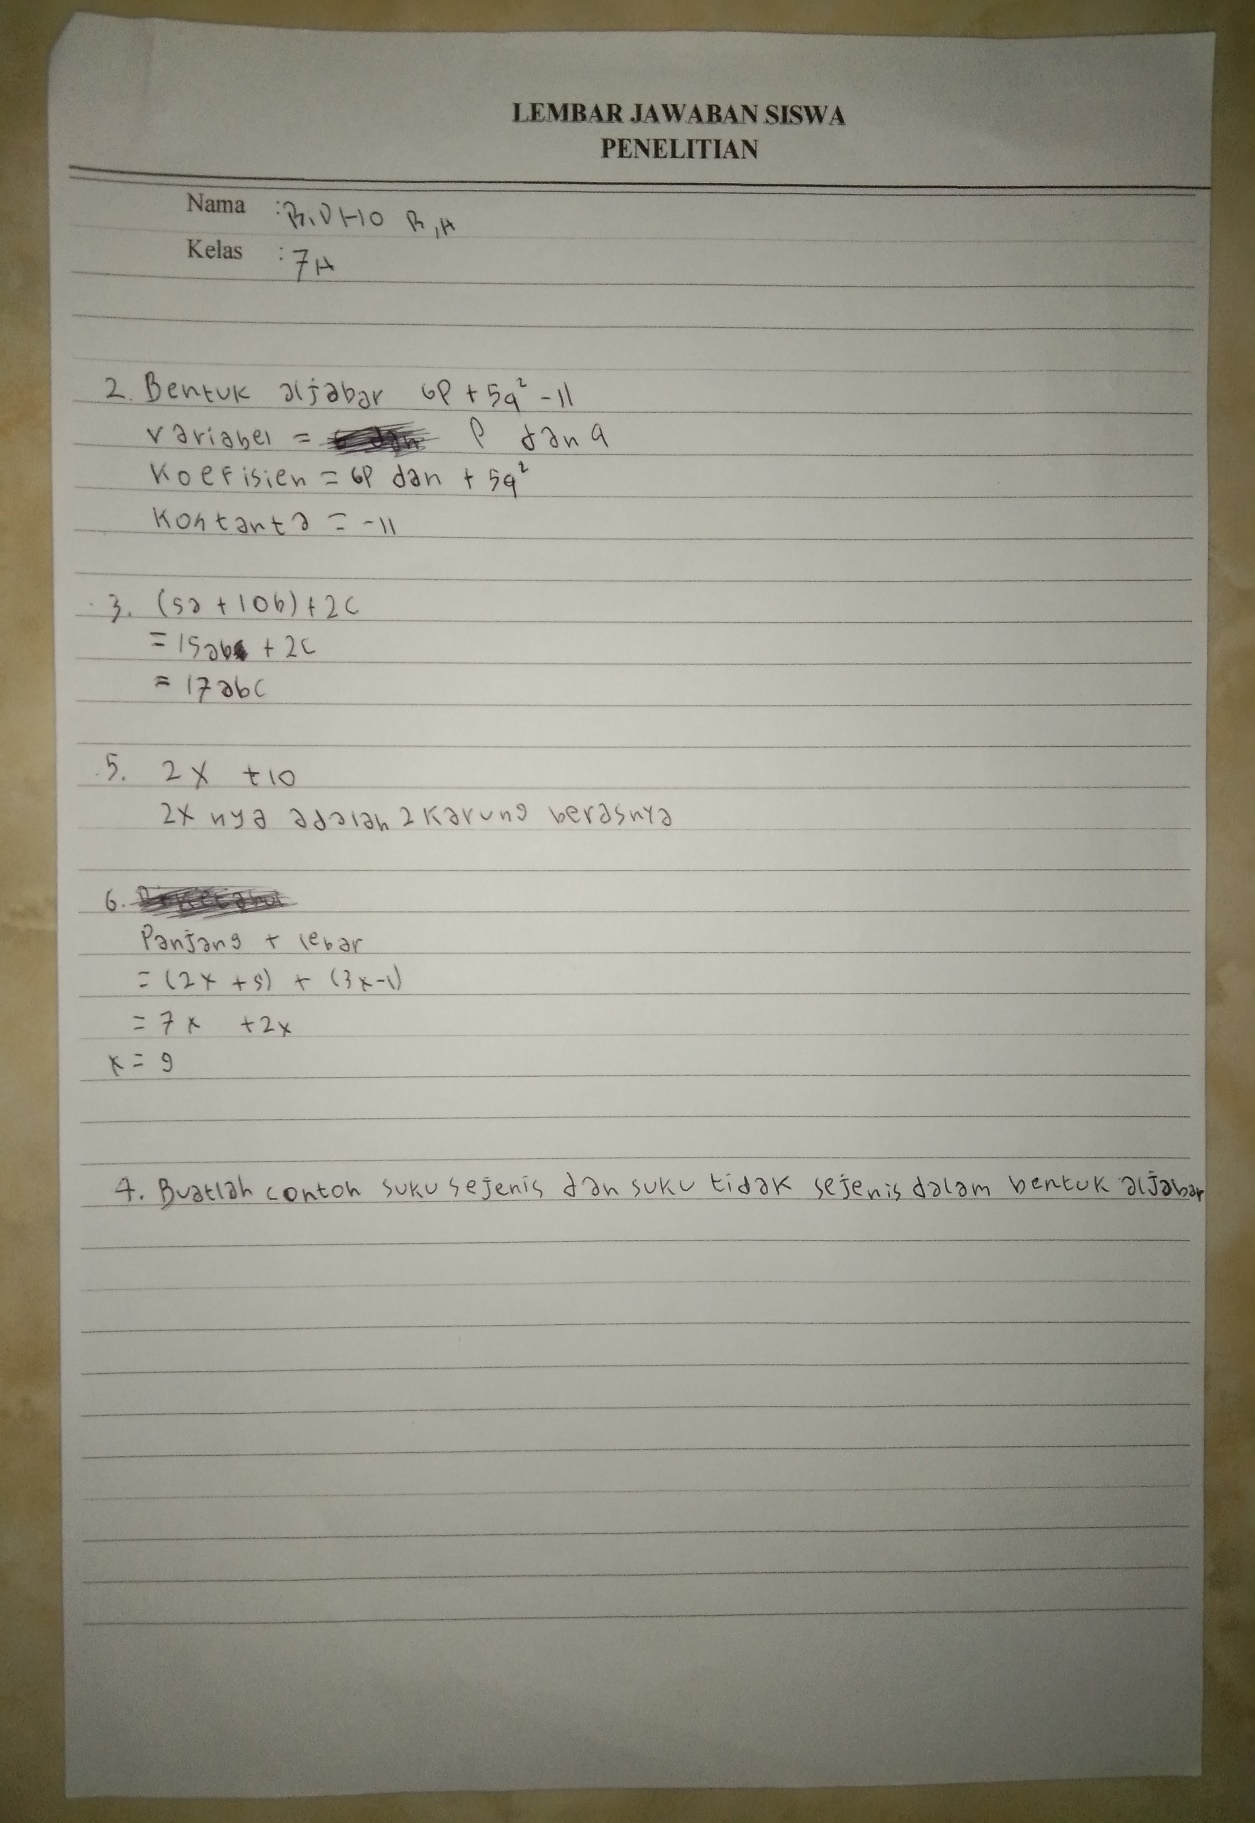 LEMBAR JAWABAN SISWA
PENELITIAN
Nama : RIDHO R,A
Kelas : 7A
2. Bentuk aljabar 6P + 5q² - 11
variabel = P dan q
Koefisien = 6P dan + 5q²
Kontanta = -11
3. (5a + 10b) + 2c
= 15ab + 2c
= 17abc
5. 2x +10
2x nya adalah 2 karung berasnya
6.
Panjang + lebar
= (2x +5) + (3x-1)
= 7x +2x
x = 9
4. Buatlah contoh suku sejenis dan suku tidak sejenis dalam bentuk aljabar